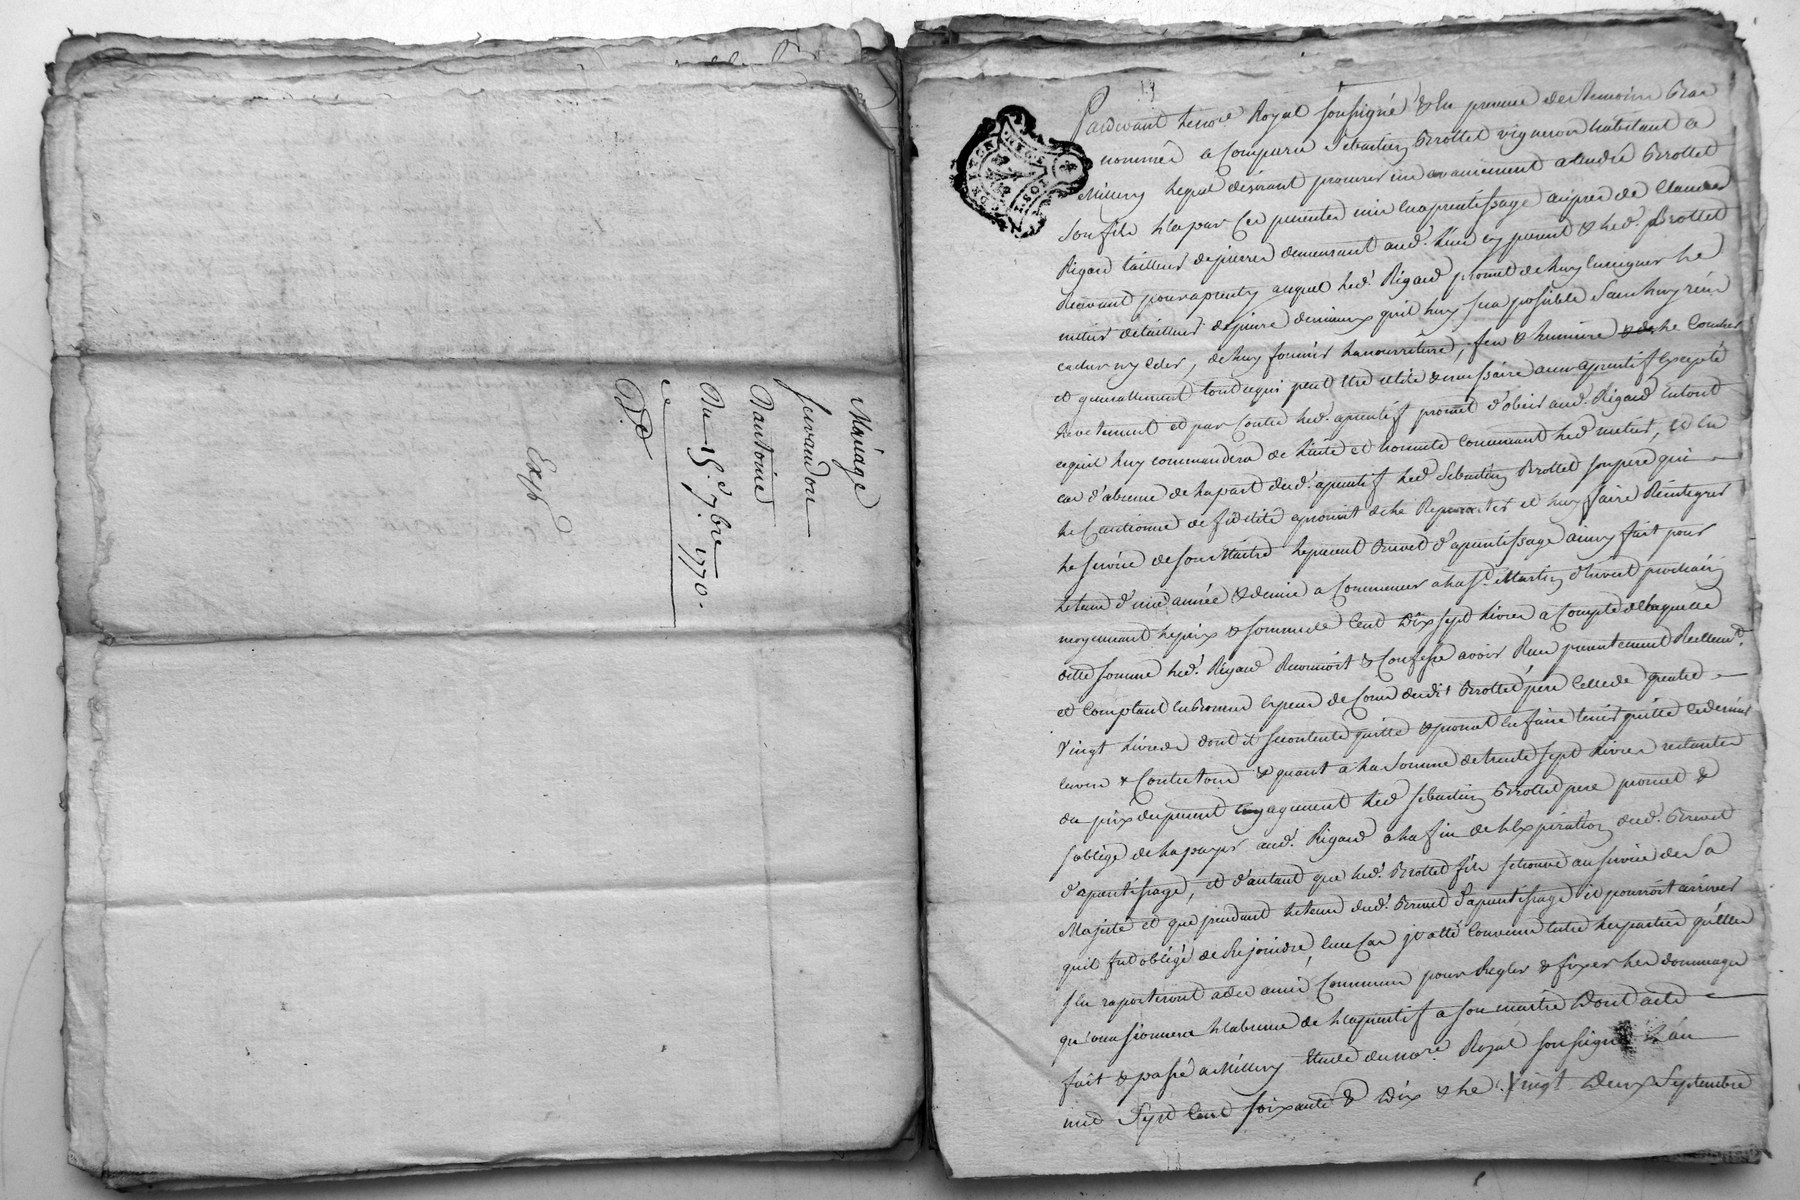 Mariage
Servandon
Dantoine
Du 15.e 7.bre 1770.
Ce
D.d
Exp
Pardevant le no.re Royal soussigné & En presence des temoins Bas
nommés a Comparu Sebastien Brottet vigneron habitant a
Millery lequel desirant procurer un avancement a André Brottet
son fils l'a par ces presentes mis En aprentissage aupres de Claude
Rigard tailleur de pierres demeurant aud. lieu cy present & led. Brottet
Recevant pour aprenty auquel led. Rigard promet de luy Enseigner le
metier de tailleur de pierre du mieux qu'il luy sera possible sans luy rien
cacher ny celer, de luy fournir la nourriture, feu & lumiere & le Coucher
et generallement tout ce qui peut Etre utile & necessaire a un aprentif Excepté
le vetement et par Contre led. aprentif promet d'obeir aud. Rigard En tout
ce quil luy commandera de licite et honnete concernant led metier, et En
cas d'absence de la part dud. aprentif led Sebastien Brottet son pere qui
le Cautionne de fidelité promet de le Representer et luy faire Reintegrer
le service de son Maitre le present Brevet d'aprentissage ainsy fait pour
le tems d'une année & demie a Commencer a la S.t Martin d'hiver prochain
moyennant le prix & somme de Cent dix sept livres a Compte de laquelle
ditte somme led. Rigard Reconnoit & Confesse avoir Reçu presentement Reellem.t
et Comptant En Bonnes Especes de Cours dudit Brottet pere Celle de quatre
Vingt livres dont il se contente quitte & promet En faire tenir quitte ce dernier
Envers & Contre tous & quant a la Somme de trente sept livres restantes
du prix du present Engagement led Sebastien Brottet pere promet &
s'oblige de la payer aud. Rigard a la fin de l'Expiration dud. Brevet
d'aprentissage, et d'autant que led. Brottet fils se trouve au service de Sa
Majesté et que pendant le tems dud. Brevet d'aprentissage il pourroit arriver
quil fut obligé de Rejoindre, En ce Cas il a été Convenu Entre les parties quelles
s'En raporteront a des amis Communs pour Regler & fixer les dommages
qu'occasionnera l'absence de l'aprentif a son maitre Dont acte
fait & passé a Millery Etude du no.re Royal soussigné L'an
mil Sept Cent soixante & Dix & le Vingt Deux Septembre